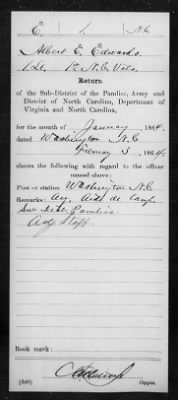 E. | 1. | N.C.
Albert E. Edwards.
1 Lt. 1st N.C. Vols.
Return
of the Sub-District of the Pamlico, Army and
District of North Carolina, Department of
Virginia and North Carolina,
for the month of January, 1864,
dated Washington N.C.
February 3, 1864,
shows the following with regard to the officer
named above:
Post or station Washington N.C.
Remarks: Acg. Aide de Camp
Sub Dist. Pamlico.
Staff.
Book mark:
(546)
Copyist.